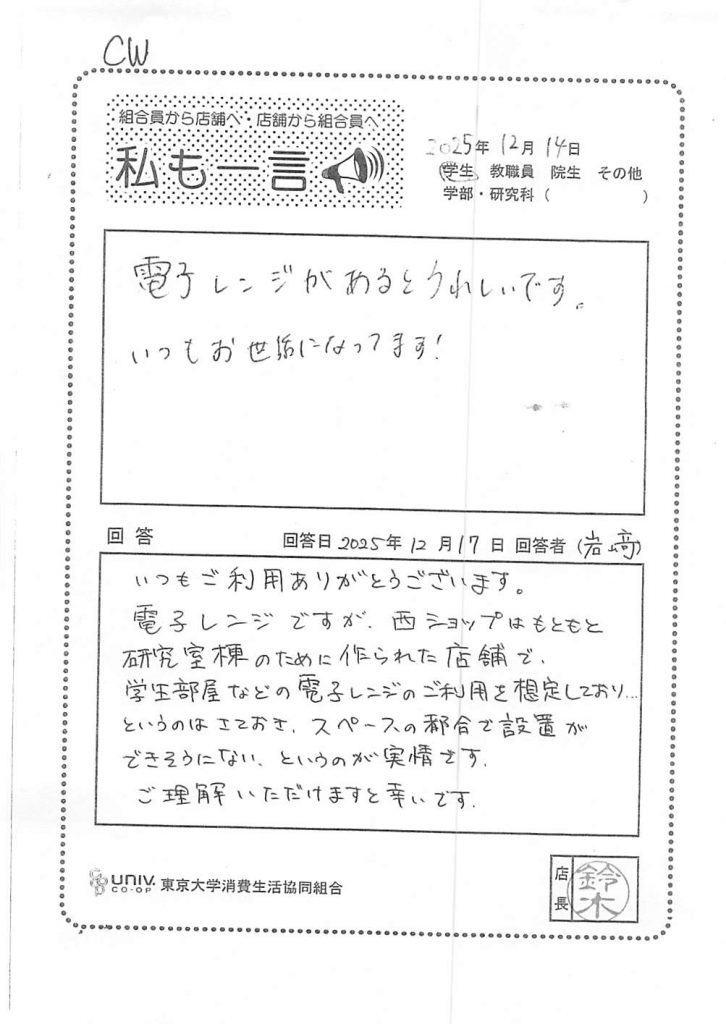 CW
組合員から店舗へ・店舗から組合員へ
私も一言
2025年 12月 14日
学生 教職員 院生 その他
学部・研究科（ ）
電子レンジがあるとうれしいです。
いつもお世話になってます!
回答 回答日 2025年 12月 17日 回答者（岩﨑）
いつもご利用ありがとうございます。
電子レンジですが、西ショップはもともと
研究室棟のために作られた店舗で、
学生部屋などの電子レンジのご利用を想定しており…
というのはさておき、スペースの都合で設置が
できそうにない、というのが実情です。
ご理解いただけますと幸いです。
UNIV. CO-OP 東京大学消費生活協同組合
店長 鈴木